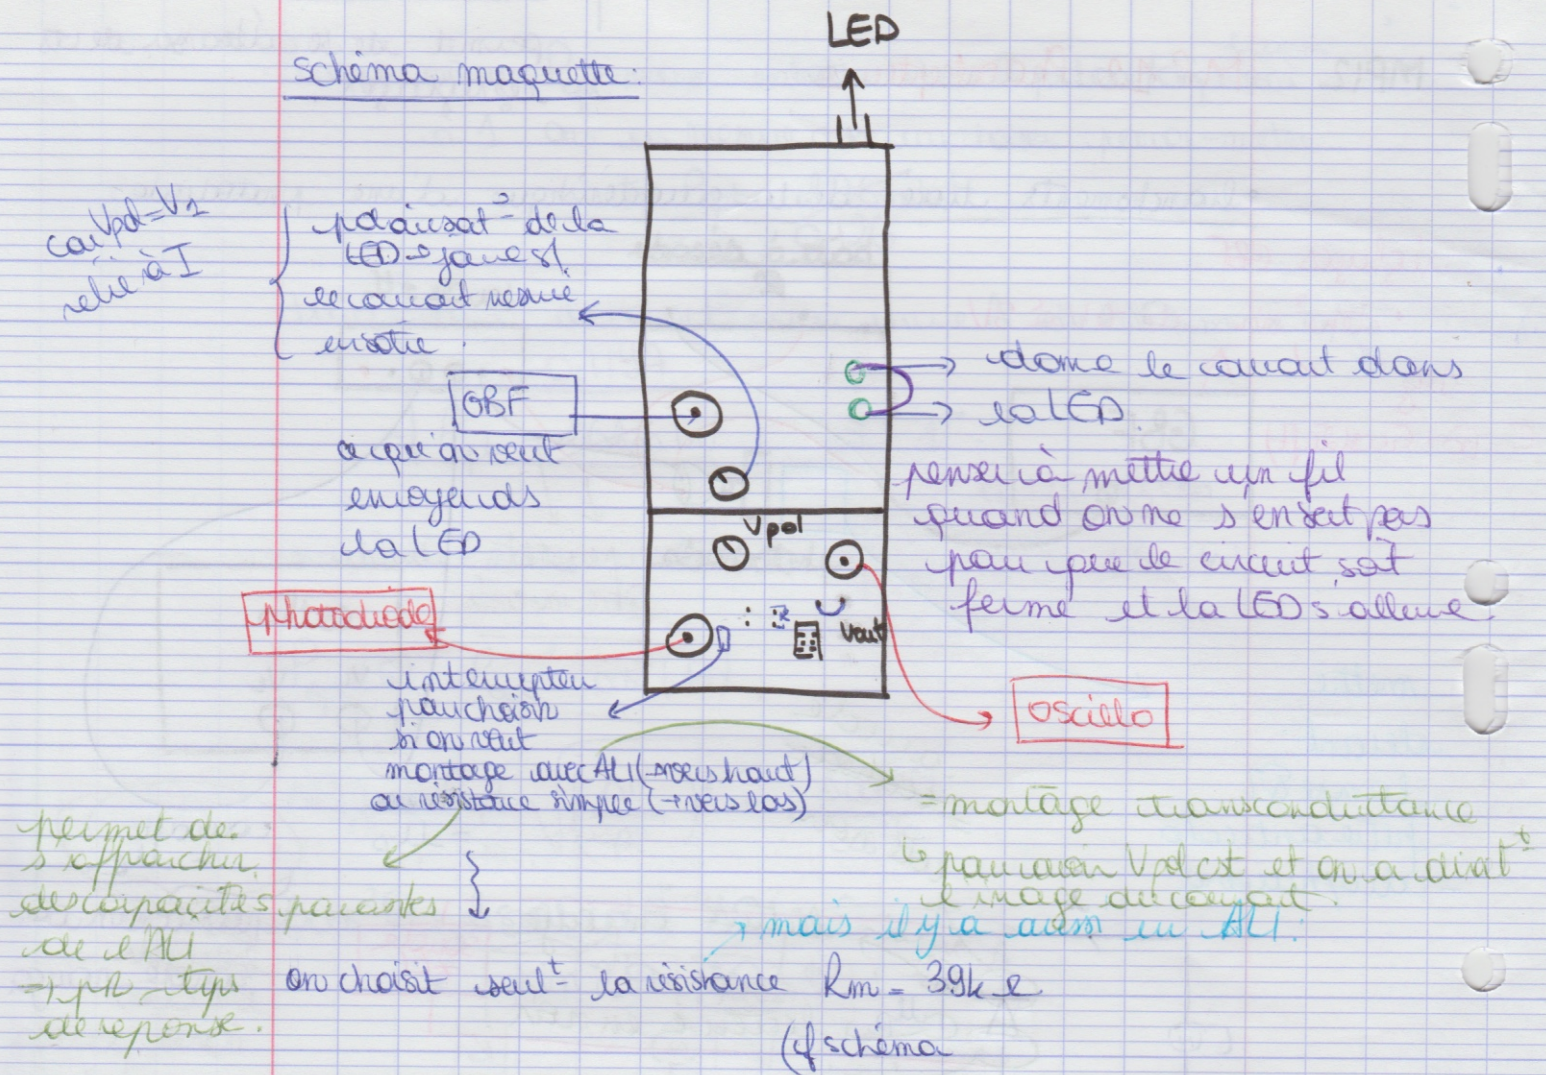 LED
schéma maquette:
car Vpol = V1
relié à I
polarisat° de la
LED → joue sf
le courant mesuré
en sortie.
GBF
ce qu'on veut
envoyer ds
la LED
donne le courant dans
la LED.
penser à mettre un fil
quand on ne s'en sert pas
pour que le circuit soit
fermé et la LED s'allume.
Vpol
Vout
photodiode
oscillo
interrupteur
pour choisir
si on veut
montage avec ALI (→ vers haut)
ou résistance simple (→ vers bas)
= montage transconductance
↳ pour avoir Vpol cst et on a direct^t
l'image du courant.
permet de
s'affranchir
des capacités parasites
de l'ALI
→ pr tps
de réponse.
→ mais il y a aussi un ALI.
on choisit seul^t la résistance Rm = 39k
(cf schéma